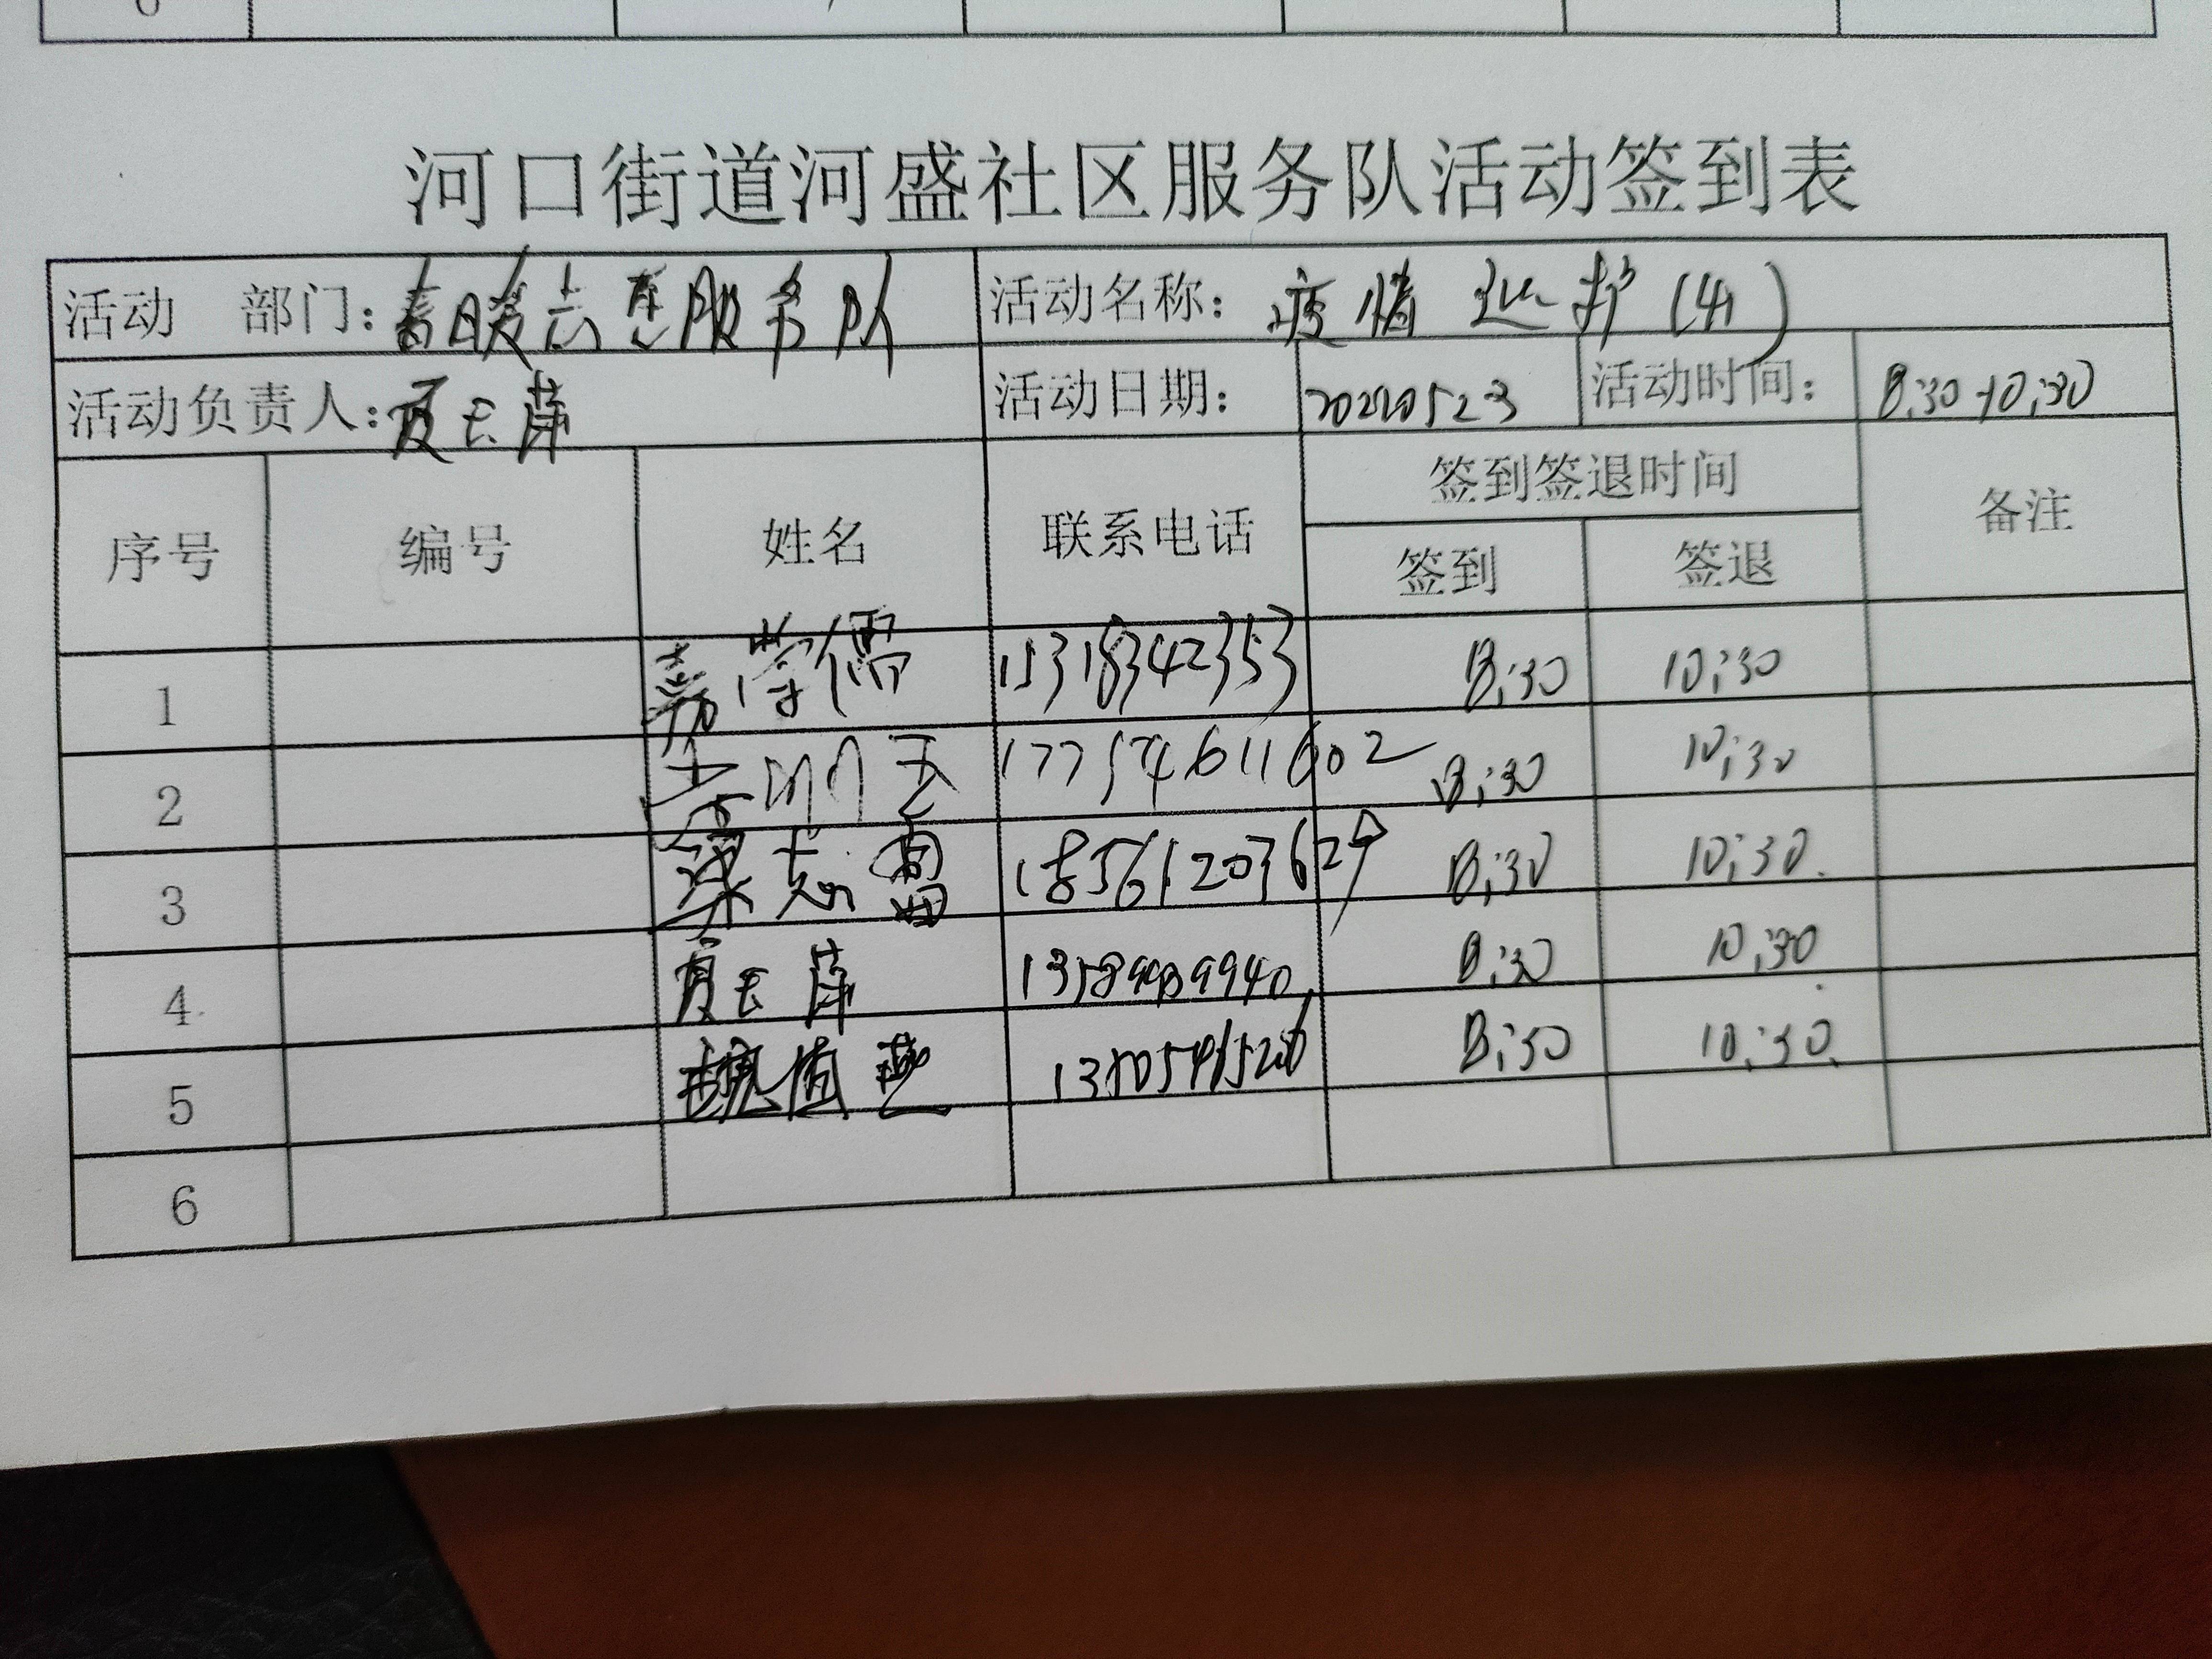 6
河口街道河盛社区服务队活动签到表
活动 部门：春暖志愿服务队 活动名称：疫情巡护(4)
活动负责人：夏 萍 活动日期：20220523 活动时间：8:30-10:30
序号 编号 姓名 联系电话 签到签退时间 备注
签到 签退
1 15318342353 8:30 10:30
2 17754611602 8:30 10:30
3 梁志 8:30 10:30
4 夏 萍 8:30 10:30
5 魏 8:30 10:30
6